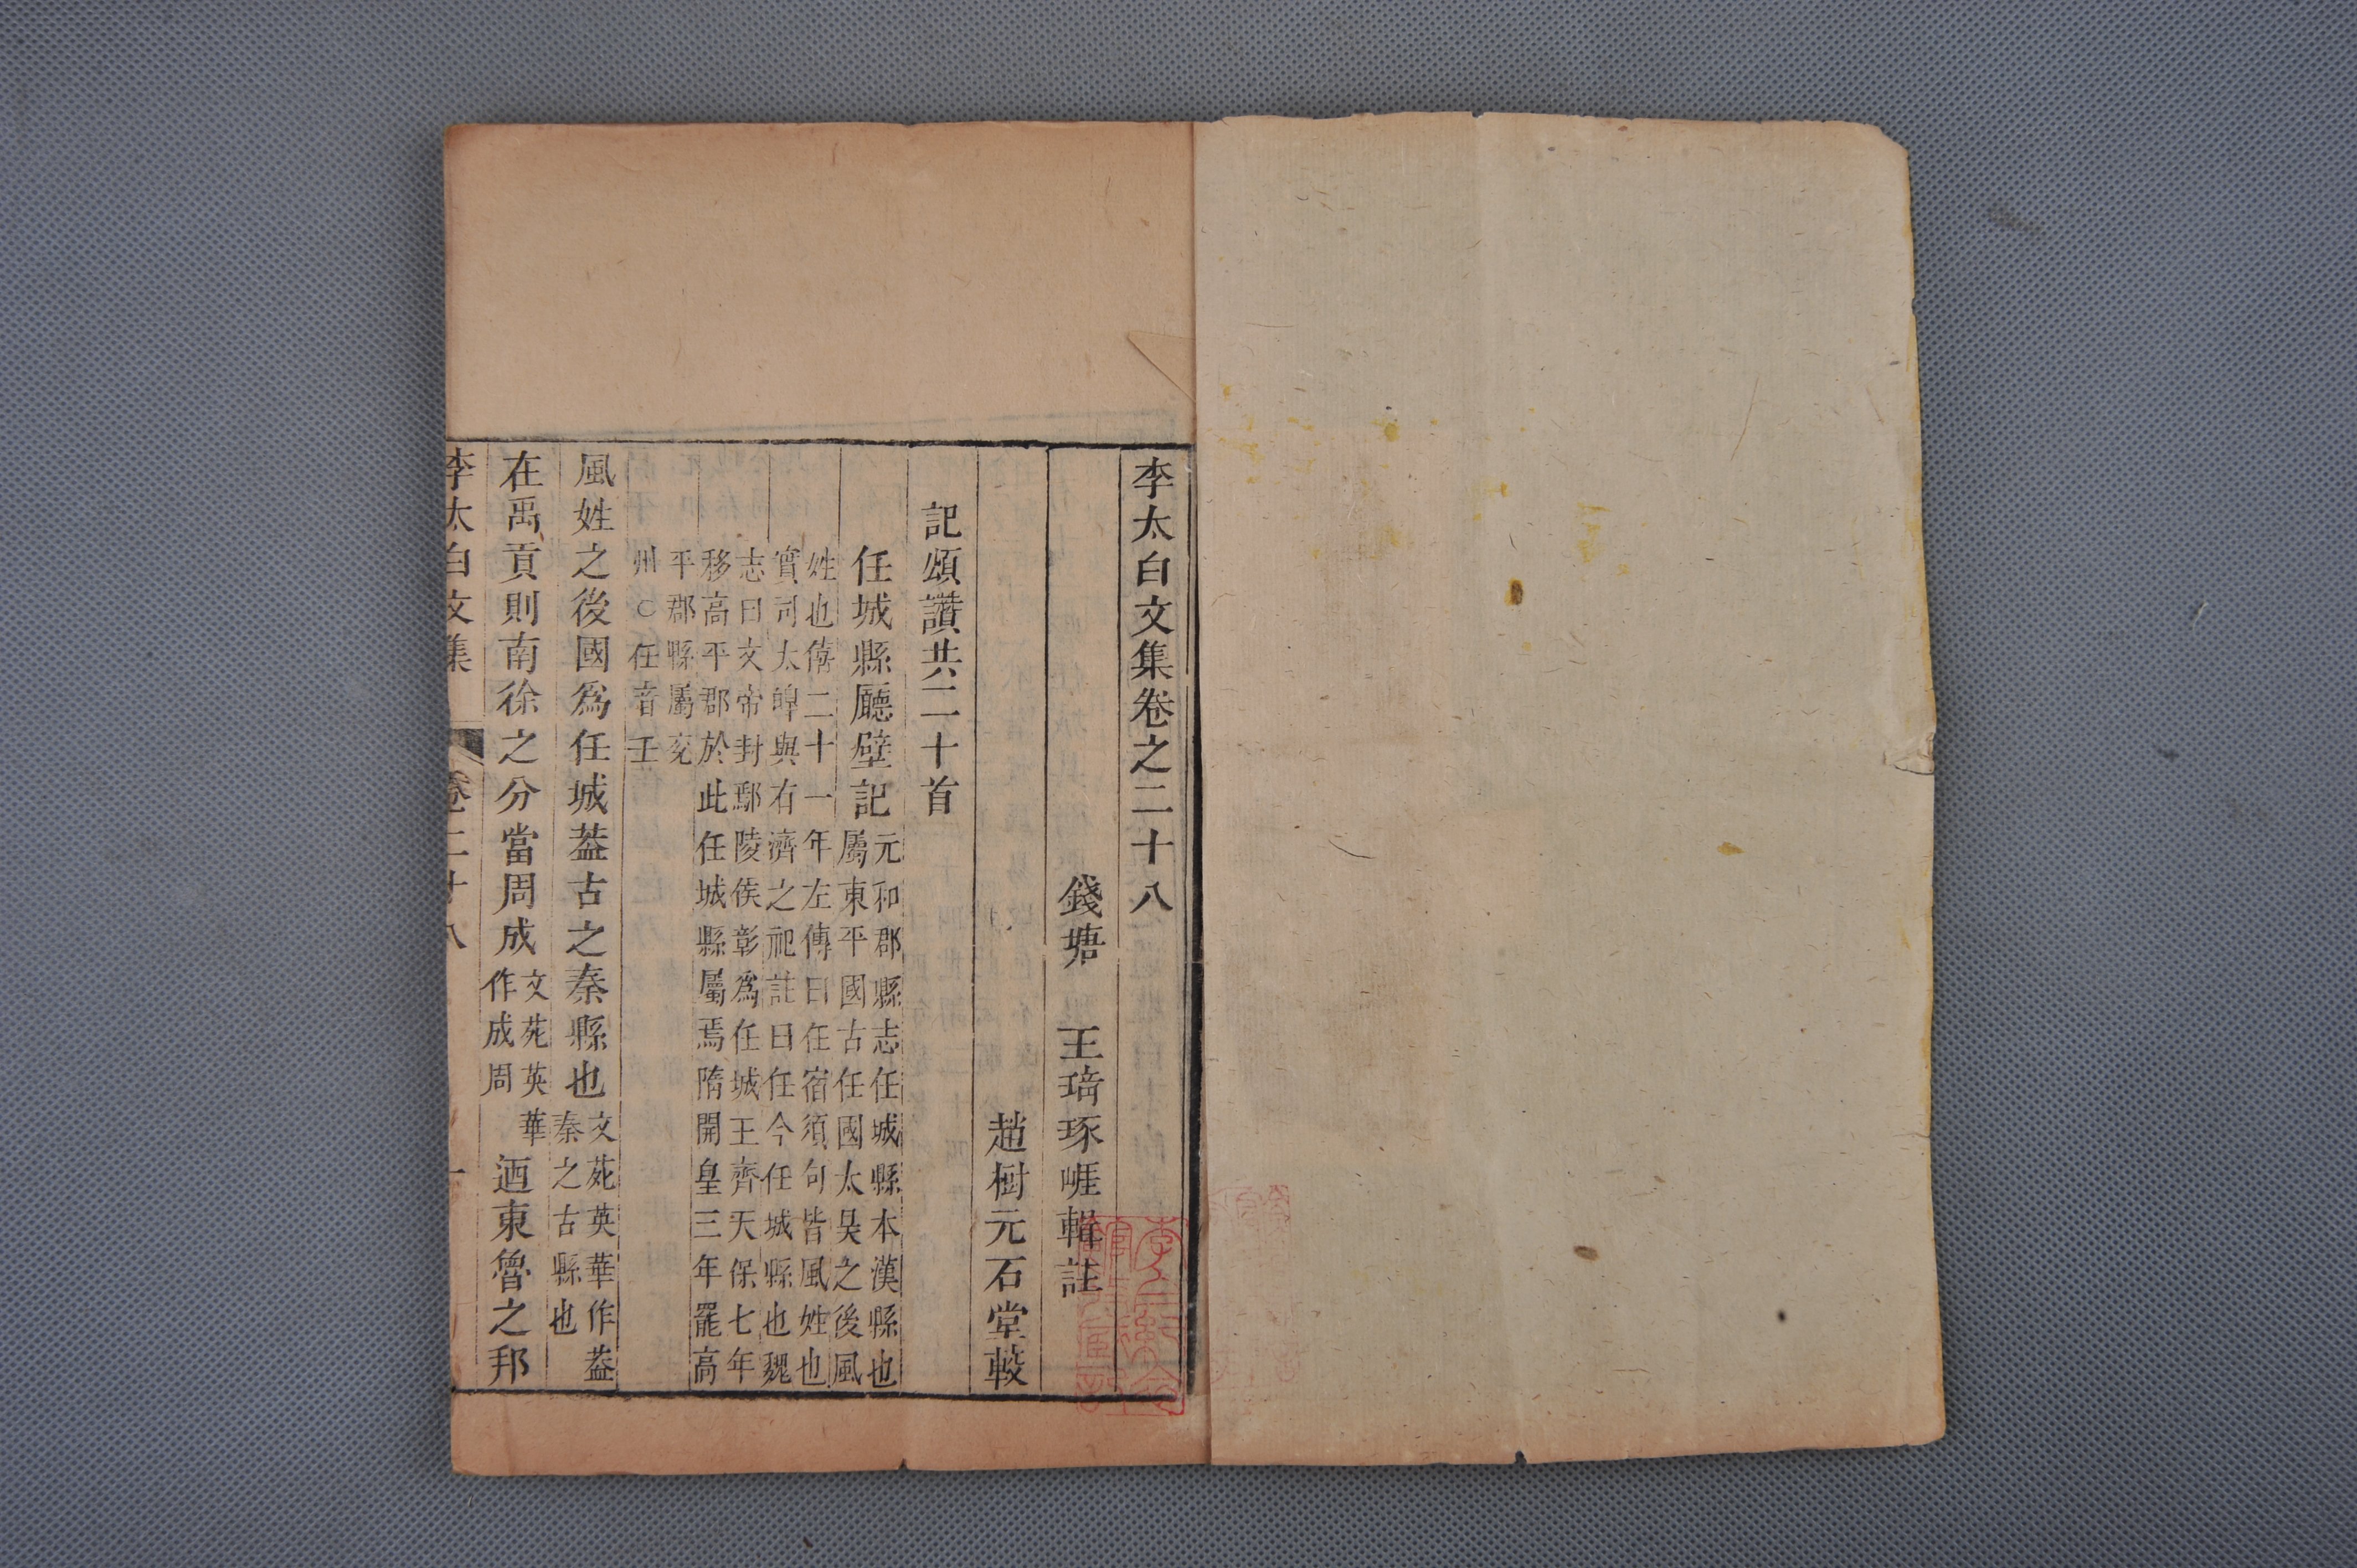 李太白文集卷之二十八
錢塘 王琦琢崖輯註
趙樹元石堂較
記頌讚共二十首
任城縣廳壁記
元和郡縣志任城縣本漢縣也
屬東平國古任國太昊之後風
姓也僖二十一年左傳曰任宿須句皆風姓也
實司太皥與有濟之祀註曰任今任城縣也魏
志曰文帝封鄢陵侯彰爲任城王齊天保七年
移高平郡於此任城縣屬焉隋開皇三年罷高
平郡縣屬兖
州○任音壬
風姓之後國爲任城葢古之秦縣也
文苑英華作葢
秦之古縣也
在禹貢則南徐之分當周成
文苑英華
作成周
迺東魯之邦
李太白文集 卷二十八 一